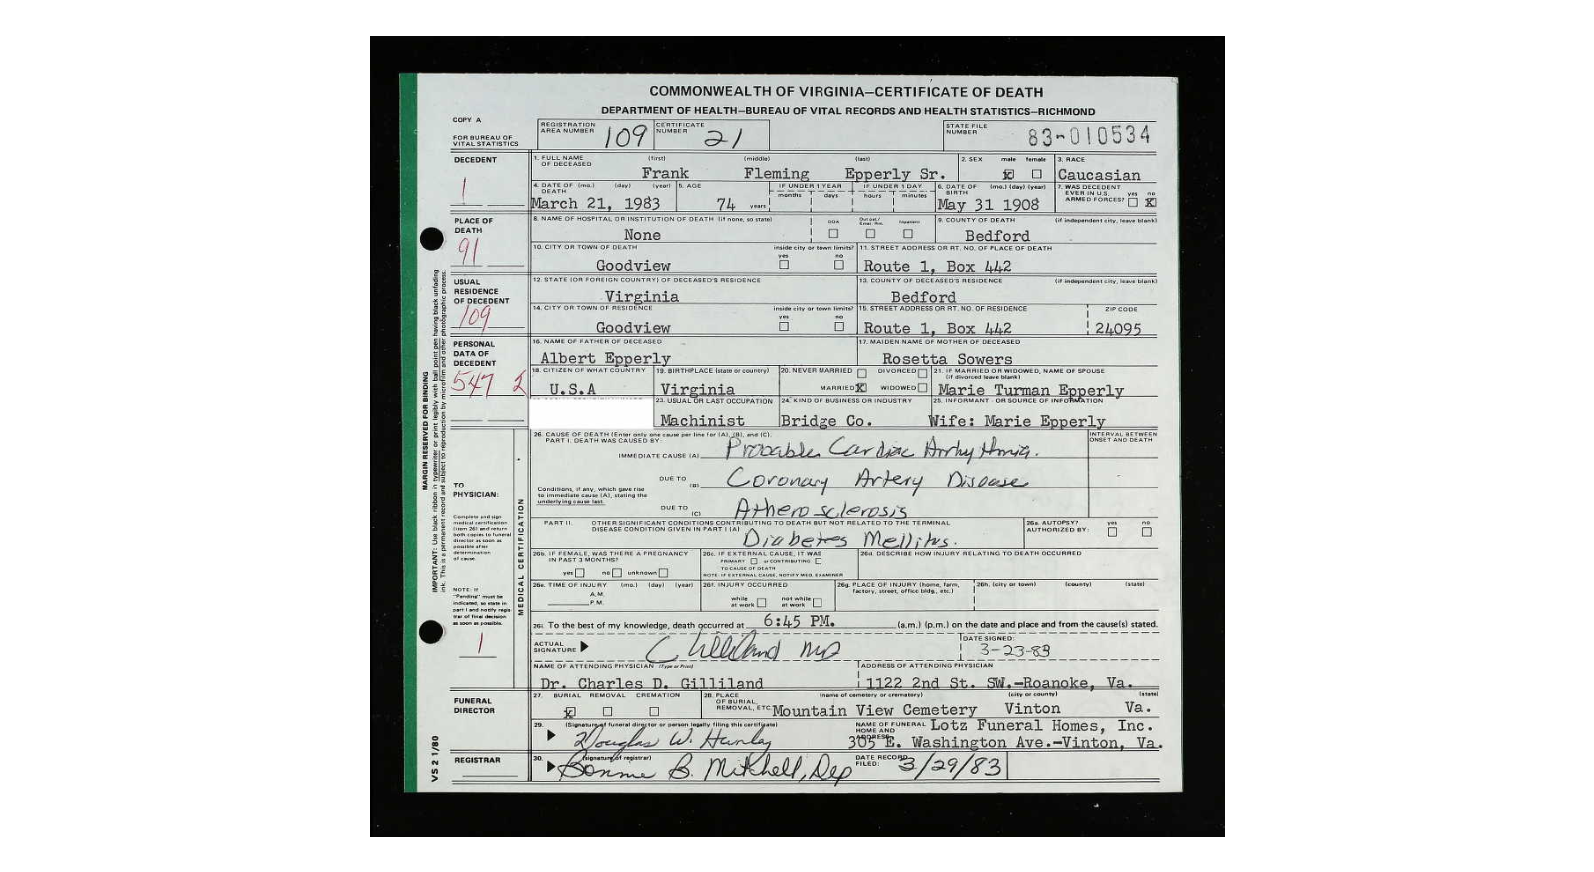 COMMONWEALTH OF VIRGINIA—CERTIFICATE OF DEATH
DEPARTMENT OF HEALTH—BUREAU OF VITAL RECORDS AND HEALTH STATISTICS—RICHMOND
COPY A
FOR BUREAU OF VITAL STATISTICS
REGISTRATION AREA NUMBER 109 CERTIFICATE NUMBER 21 STATE FILE NUMBER 83-010534
DECEDENT
1
1. FULL NAME OF DECEASED (first) (middle) (last) 2. SEX male female 3. RACE
Frank Fleming Epperly Sr. X Caucasian
4. DATE OF DEATH (mo.) (day) (year) 5. AGE IF UNDER 1 YEAR months days IF UNDER 1 DAY hours minutes 6. DATE OF BIRTH (mo.) (day) (year) 7. WAS DECEDENT EVER IN U.S. ARMED FORCES? yes no
March 21, 1983 74 years May 31 1908 X
PLACE OF DEATH
91
8. NAME OF HOSPITAL OR INSTITUTION OF DEATH (if none, so state) DOA Inpatient 9. COUNTY OF DEATH (if independent city, leave blank)
None Bedford
10. CITY OR TOWN OF DEATH inside city or town limits? yes no 11. STREET ADDRESS OR RT. NO. OF PLACE OF DEATH
Goodview Route 1, Box 442
USUAL RESIDENCE OF DECEDENT
109
12. STATE (OR FOREIGN COUNTRY) OF DECEASED'S RESIDENCE 13. COUNTY OF DECEASED'S RESIDENCE (if independent city, leave blank)
Virginia Bedford
14. CITY OR TOWN OF RESIDENCE inside city or town limits? yes no 15. STREET ADDRESS OR RT. NO. OF RESIDENCE ZIP CODE
Goodview Route 1, Box 442 24095
PERSONAL DATA OF DECEDENT
547 2
16. NAME OF FATHER OF DECEASED 17. MAIDEN NAME OF MOTHER OF DECEASED
Albert Epperly Rosetta Sowers
18. CITIZEN OF WHAT COUNTRY 19. BIRTHPLACE (state or country) 20. NEVER MARRIED DIVORCED MARRIED X WIDOWED 21. IF MARRIED OR WIDOWED, NAME OF SPOUSE (if divorced leave blank)
U.S.A Virginia Marie Turman Epperly
23. USUAL OR LAST OCCUPATION 24. KIND OF BUSINESS OR INDUSTRY 25. INFORMANT - OR SOURCE OF INFORMATION
Machinist Bridge Co. Wife: Marie Epperly
MARGIN RESERVED FOR BINDING
IMPORTANT: Use black ribbon in typewriter or print legibly with ball point pen having black unfading ink. This is a permanent record and subject to reproduction by microfilm and other photographic process.
TO PHYSICIAN:
Complete and sign medical certification (item 26) and return both copies to funeral director as soon as possible after determination of cause.
NOTE: If "Pending" must be indicated, so state in part I and notify registrar of final decision as soon as possible.
1
MEDICAL CERTIFICATION
26. CAUSE OF DEATH (Enter only one cause per line for (A), (B), and (C).
PART I. DEATH WAS CAUSED BY: INTERVAL BETWEEN ONSET AND DEATH
IMMEDIATE CAUSE (A) Probable Cardiac Arrhythmia.
DUE TO (B) Coronary Artery Disease
Conditions, if any, which gave rise to immediate cause (A), stating the underlying cause last.
DUE TO (C) Atherosclerosis
PART II. OTHER SIGNIFICANT CONDITIONS CONTRIBUTING TO DEATH BUT NOT RELATED TO THE TERMINAL DISEASE CONDITION GIVEN IN PART I (A) 26a. AUTOPSY? AUTHORIZED BY: yes no
Diabetes Mellitus.
26b. IF FEMALE, WAS THERE A PREGNANCY IN PAST 3 MONTHS? yes no unknown
26c. IF EXTERNAL CAUSE, IT WAS PRIMARY or CONTRIBUTING TO CAUSE OF DEATH
NOTE: IF EXTERNAL CAUSE, NOTIFY MED. EXAMINER
26d. DESCRIBE HOW INJURY RELATING TO DEATH OCCURRED
26e. TIME OF INJURY (mo.) (day) (year) A.M. P.M.
26f. INJURY OCCURRED while at work not while at work
26g. PLACE OF INJURY (home, farm, factory, street, office bldg., etc.)
26h. (city or town) (county) (state)
26i. To the best of my knowledge, death occurred at 6:45 PM. (a.m.) (p.m.) on the date and place and from the cause(s) stated.
ACTUAL SIGNATURE C Gilliland MD DATE SIGNED: 3-23-83
NAME OF ATTENDING PHYSICIAN (Type or Print) ADDRESS OF ATTENDING PHYSICIAN
Dr. Charles D. Gilliland 1122 2nd St. SW.-Roanoke, Va.
FUNERAL DIRECTOR
27. BURIAL REMOVAL CREMATION 28. PLACE OF BURIAL, REMOVAL, ETC. (name of cemetery or crematory) (city or county) (state)
X Mountain View Cemetery Vinton Va.
29. (Signature of funeral director or person legally filing this certificate) NAME OF FUNERAL HOME AND ADDRESS Lotz Funeral Homes, Inc.
Douglas W. Hunley 305 E. Washington Ave.-Vinton, Va.
REGISTRAR
30. (signature of registrar) DATE RECORD FILED:
Bonnie B. Mitchell, Dep 3/29/83
VS 2 1/80